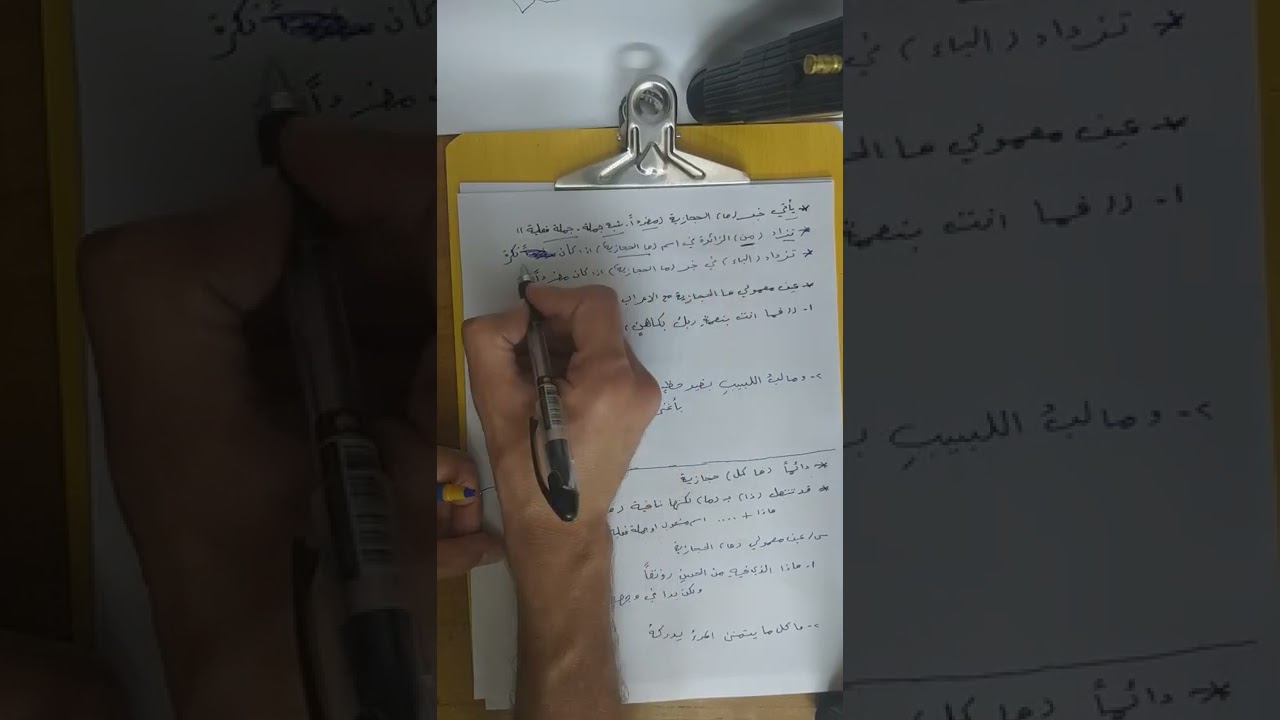 * يأتي خبر (ما) الحجازية (مفرداً. شبه جملة. جملة فعلية))
* تزاد (من) الزائدة في اسم (ما الحجازية) اذا كان نكرة
* تزداد (الباء) في خبر (ما الحجازية) اذا كان مفرداً
* عين معمولي ما الحجازية مع الاعراب
١- ((فما انت بنعمة ربك بكاهنٍ
٢- وما لبة اللبيبِ بغير حظٍ
بأغنى
* دائماً (ما كل) حجازية
* قد تتصل (ذا) بـ (ما) لكنها نافية
ماذا + .... اسم مفعول او جملة فعلية
س/ عين معمولي (ما) الحجازية
١- ماذا الذي فيهِ من الحسنِ رونقاً
ولكن بدا في وجهه
٢- ما كل ما يتمنى المرءُ يدركهُ